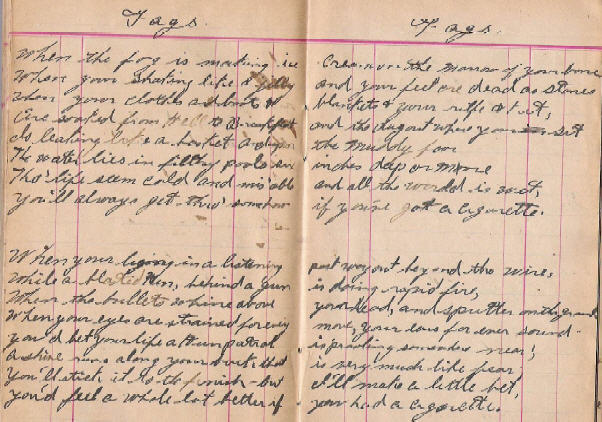 Fags.
When the fog is making ice
When your shaking like a jelly
When your clothes and boots &
Are soaked from Hell to Breakfast
Is leaking like a basket and upon
The water lies in filthy pools
Tho' life seem cold and mis able
You'll always get thro' somehow
When your lying in a listening
While a blasted Hun, behind a gun
When the bullets whine about
When your eyes are strained for every
you'd bet your life a Hun patrol
A shine runs along your that
You'll stick it to the finish but
you'd feel a whole lot better if
Fags.
on the marrow of your bone
and your feet are dead as stones
blankets & your rifle &
and the dugout where you sit
the muddy floor
inches deep or more
and all the world is wet,
if you've got a cigarette.
post way out beyond the wire,
is doing rapid fire,
your head, and sputter on the ground
more, your ears for ever sound
is prowling somewhere near,
is very much like fear
I'll make a little bet,
you had a cigarette.